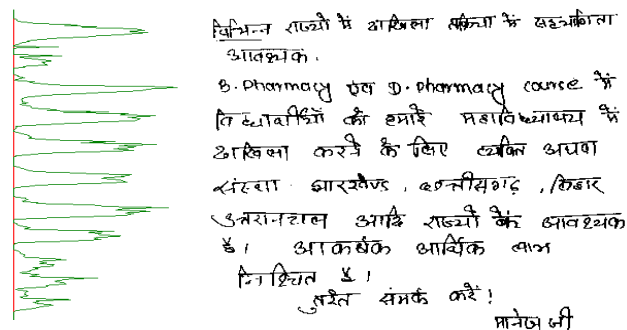 विभिन्न राज्यों में दाखिला प्रक्रिया में सहभागिता
आवश्यक.
B. Pharmacy एवं D. Pharmacy course में
विद्यार्थीयों को हमारे महाविध्यालय में
दाखिला करने के लिए व्यक्ति अथवा
संस्था झारखण्ड, छत्तीसगढ़, बिहार
उत्तरानचाल आदि राज्यों में आवश्यक
है। आकर्षक आर्थिक लाभ
निश्चित है।
तुरंत संपर्क करें!
मनोज जी